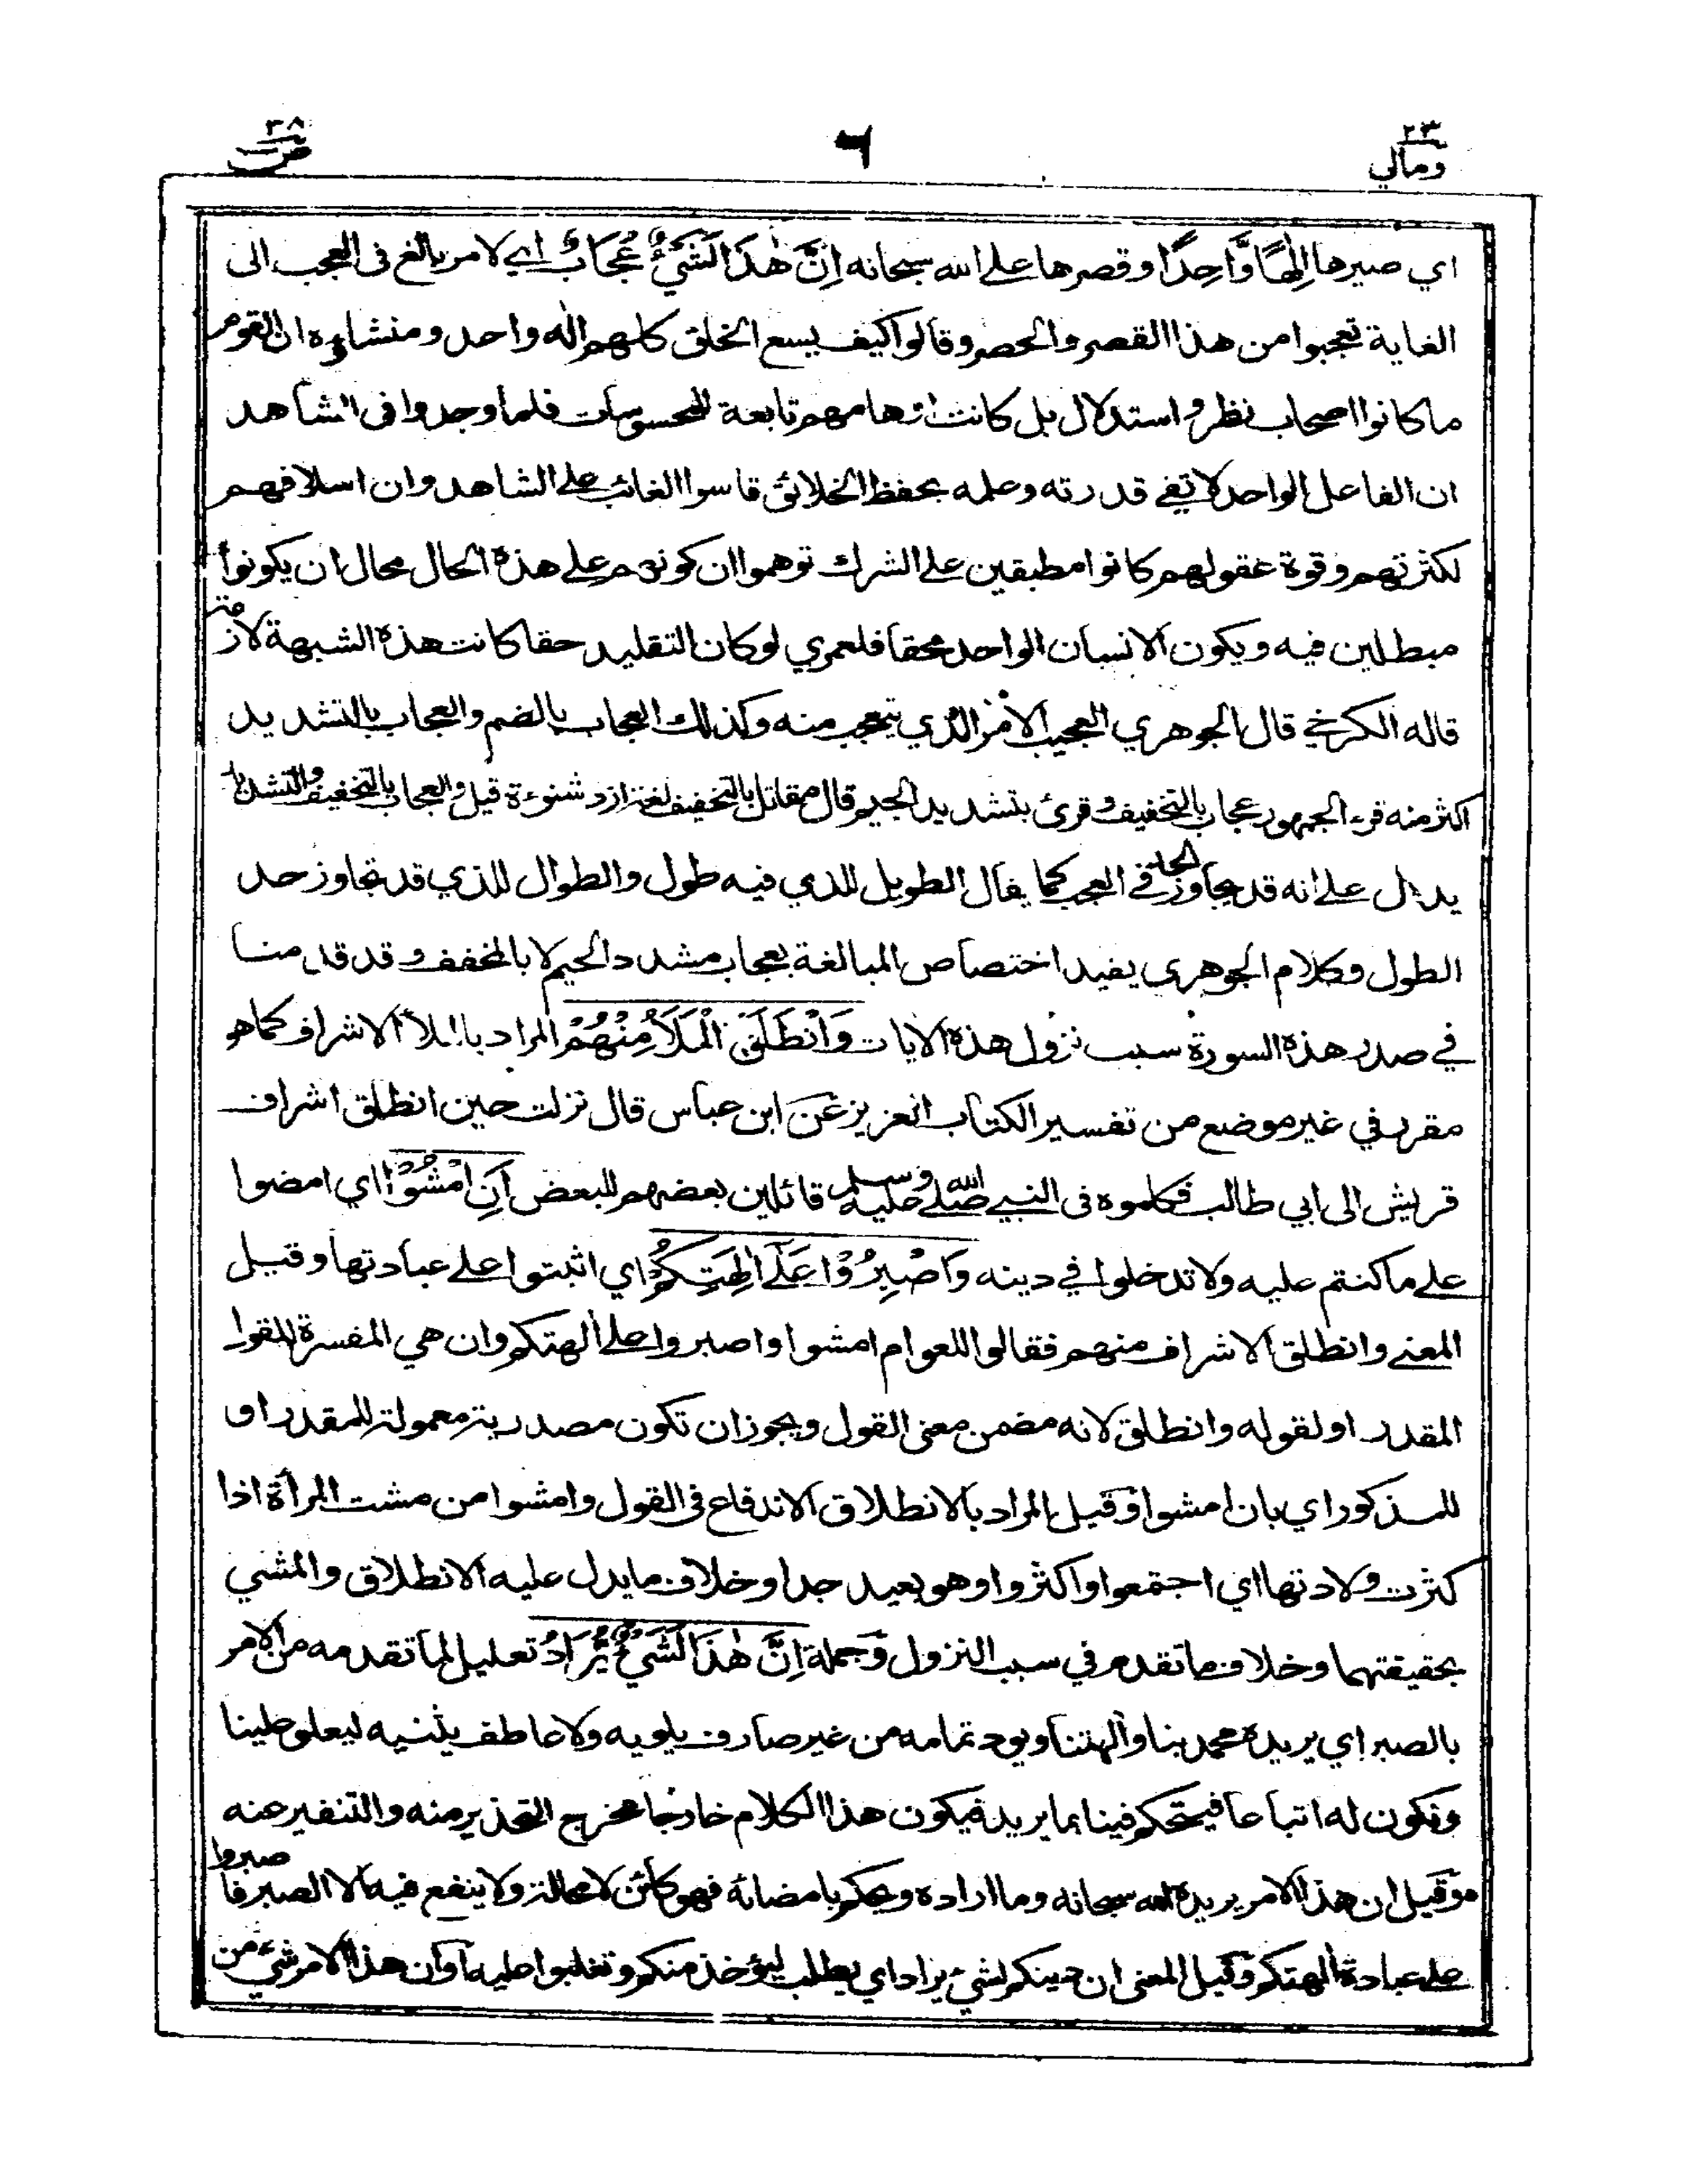 ٢٣
ومالي
٦
٣٨
ص
اي صيرها اِلٰهًا وَّاحِدًا وقصرها على الله سبحانه اِنَّ هٰذَا لَشَيْءٌ عُجَابٌ اي لامر بالغ فى العجب الى
الغاية تعجبوا من هذا القصر والحصر وقالوا كيف يسع الخلق كلهم اله واحد ومنشاءه ان القوم
ما كانوا اصحاب نظر واستدلال بل كانت اوهامهم تابعة للمحسوسات فلما وجدوا فى الشاهد
ان الفاعل الواحد لا تفي قدرته وعلمه بحفظ الخلائق قاسوا الغائب على الشاهد وان اسلافهم
لكثرتهم وقوة عقولهم كانوا مطبقين على الشرك توهموا ان كونهم على هذة الحال محال ان يكونوا
مبطلين فيه ويكون الانسان الواحد محقا فلعمري لوكان التقليد حقا كانت هذه الشبهة لازمة
قاله الكرخي قال الجوهري العجيب الامر الذي يتعجب منه وكذلك العجاب بالضم والعجاب بالتشديد
اكثر منه قرء الجمهور عجاب بالتخفيف وقرئ بتشديد الجيم قال مقاتل بالتخفيف لغة ازد شنوءة قيل والعجاب بالتخفيف والتشديد
يدل على انه قد تجاوز الحد في العجب كما يقال الطويل للذي فيه طول والطوال للذي قد تجاوز حد
الطول وكلام الجوهري يفيد اختصاص المبالغة بعجاب مشدد الجيم لا بالمخفف وقد قدمنا
في صدر هذة السورة سبب نزول هذة الايات وَانْطَلَقَ الْمَلَاُ مِنْهُمْ المراد بالملأ الاشراف كما هو
مقرر في غير موضع من تفسير الكتاب العزيز عَن ابن عباس قال نزلت حين انطلق اشراف
قريش الى ابي طالب فكلموه فى النبي صلى الله عليه وسلم قائلين بعضهم للبعض اَنِ امْشُوْا اي امضوا
على ما كنتم عليه ولا تدخلوا في دينه وَاصْبِرُوْا عَلٰٓى اٰلِهَتِكُمْ اي اثبتوا على عبادتها وقيل
المعنى وانطلق الاشراف منهم فقالوا للعوام امشوا واصبروا على ألهتكم وان هي المفسرة للقول
المقدر او لقوله وانطلق لانه مضمن معنى القول ويجوز ان تكون مصدرية معمولة للمقدر او
للمذكور اي بان امشوا وقيل المراد بالانطلاق الاندفاع فى القول وامشوا من مشت المرأة اذا
كثرت ولادتها اي اجتمعوا واكثروا وهو بعيد جدا وخلاف ما يدل عليه الانطلاق والمشي
بحقيقتهما وخلاف ما تقدم في سبب النزول وَجملة اِنَّ هٰذَا لَشَيْءٌ يُّرَادُ تعليل لما تقدمه من الامر
بالصبر اي يريدة محمد بنا وألهتنا ويود تمامه من غير صارف يلويه ولا عاطف يثنيه ليعلو علينا
ونكون له اتباعا فيتحكم فينا بما يريد فيكون هذا الكلام خارجا مخرج التحذير منه والتنفير عنه
وقيل ان هذا الامر يريدة الله سبحانه وما اراده ويحكم بامضائه فهو كائن لا محالة ولا ينفع فيه الا الصبر فاصبروا
على عبادة ألهتكم وقيل المعنى ان دينكم لشيء يراد اي يطلب ليؤخذ منكم وتغلبوا عليه أوان هذا الامر شيء من